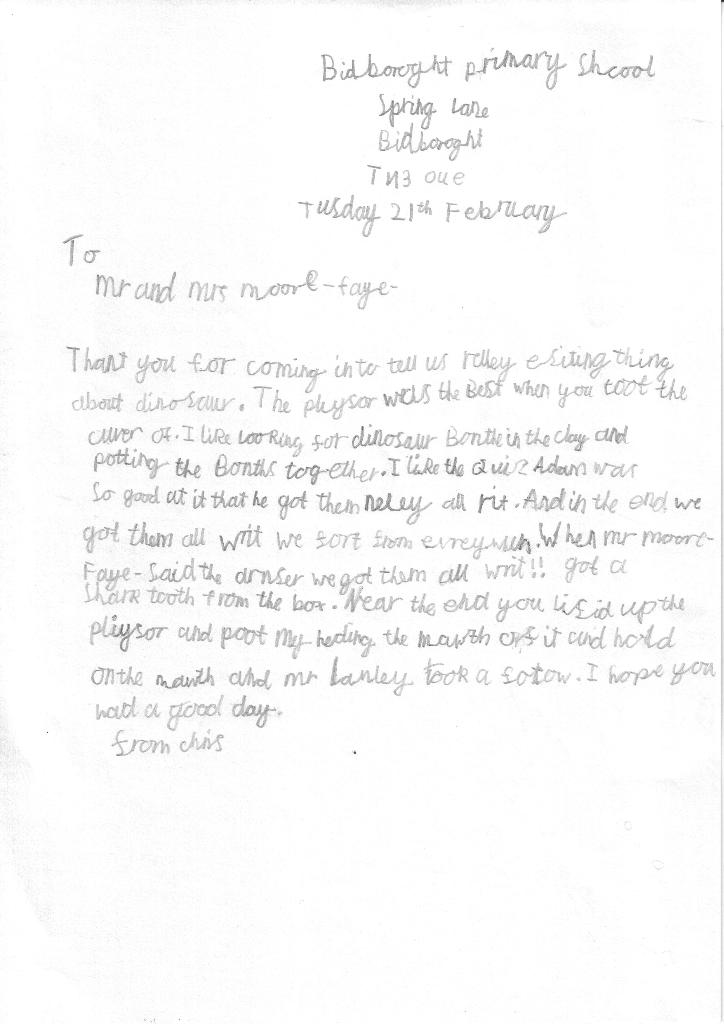 Bidboroght primary shcool
Spring Lane
Bidboroght
TN3 0UE
Tusday 21th February
To
Mr and mrs moore-faye-
Thank you for coming in to tell us relley esiting thing
about dinosaur. The pleysor was the Best when you toot the
cuver of. I like looking for dinosaur Bonth in the clay and
potting the Bonths together. I like the Quiz Adam was
so good at it that he got them neley all rit. And in the end we
got them all writ we fort from evreywun. When mr moore-
Faye-said the arnser we got them all writ!! got a
Shark tooth from the box. Near the end you lifid up the
pleysor and poot my hed ing the mawth orf it and hold
on the mawth and mr Lanley took a fotow. I hope you
had a good day.
from chris